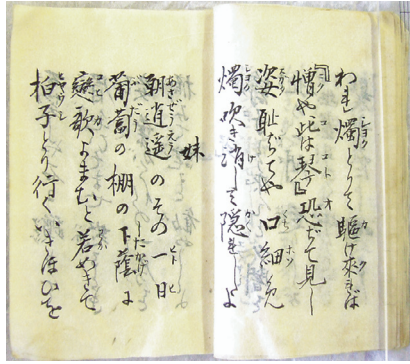 われ燭とりて駆け來れば
憎や此は琴』恐ぢて見し
姿恥ぢてや口細め
燭吹き消して隠れしよ
妹
朝逍遥のその一日
葡萄の棚の下蔭に
戀歌よまむと若めきて
拍子とり行くいきほひを